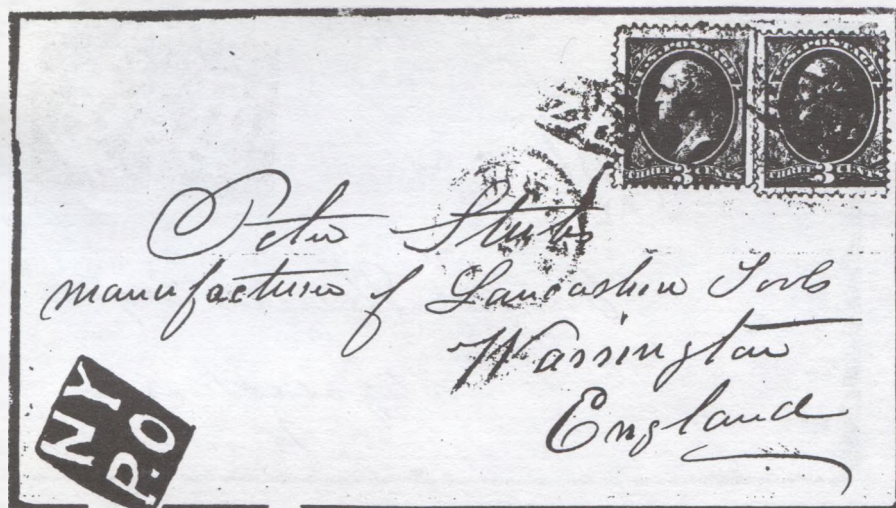 U.S. POSTAGE
THREE 3 CENTS
U.S. POSTAGE
THREE 3 CENTS
Peter Stubs
manufacturer of Lancashire Tools
Warrington
England
NY
P.O